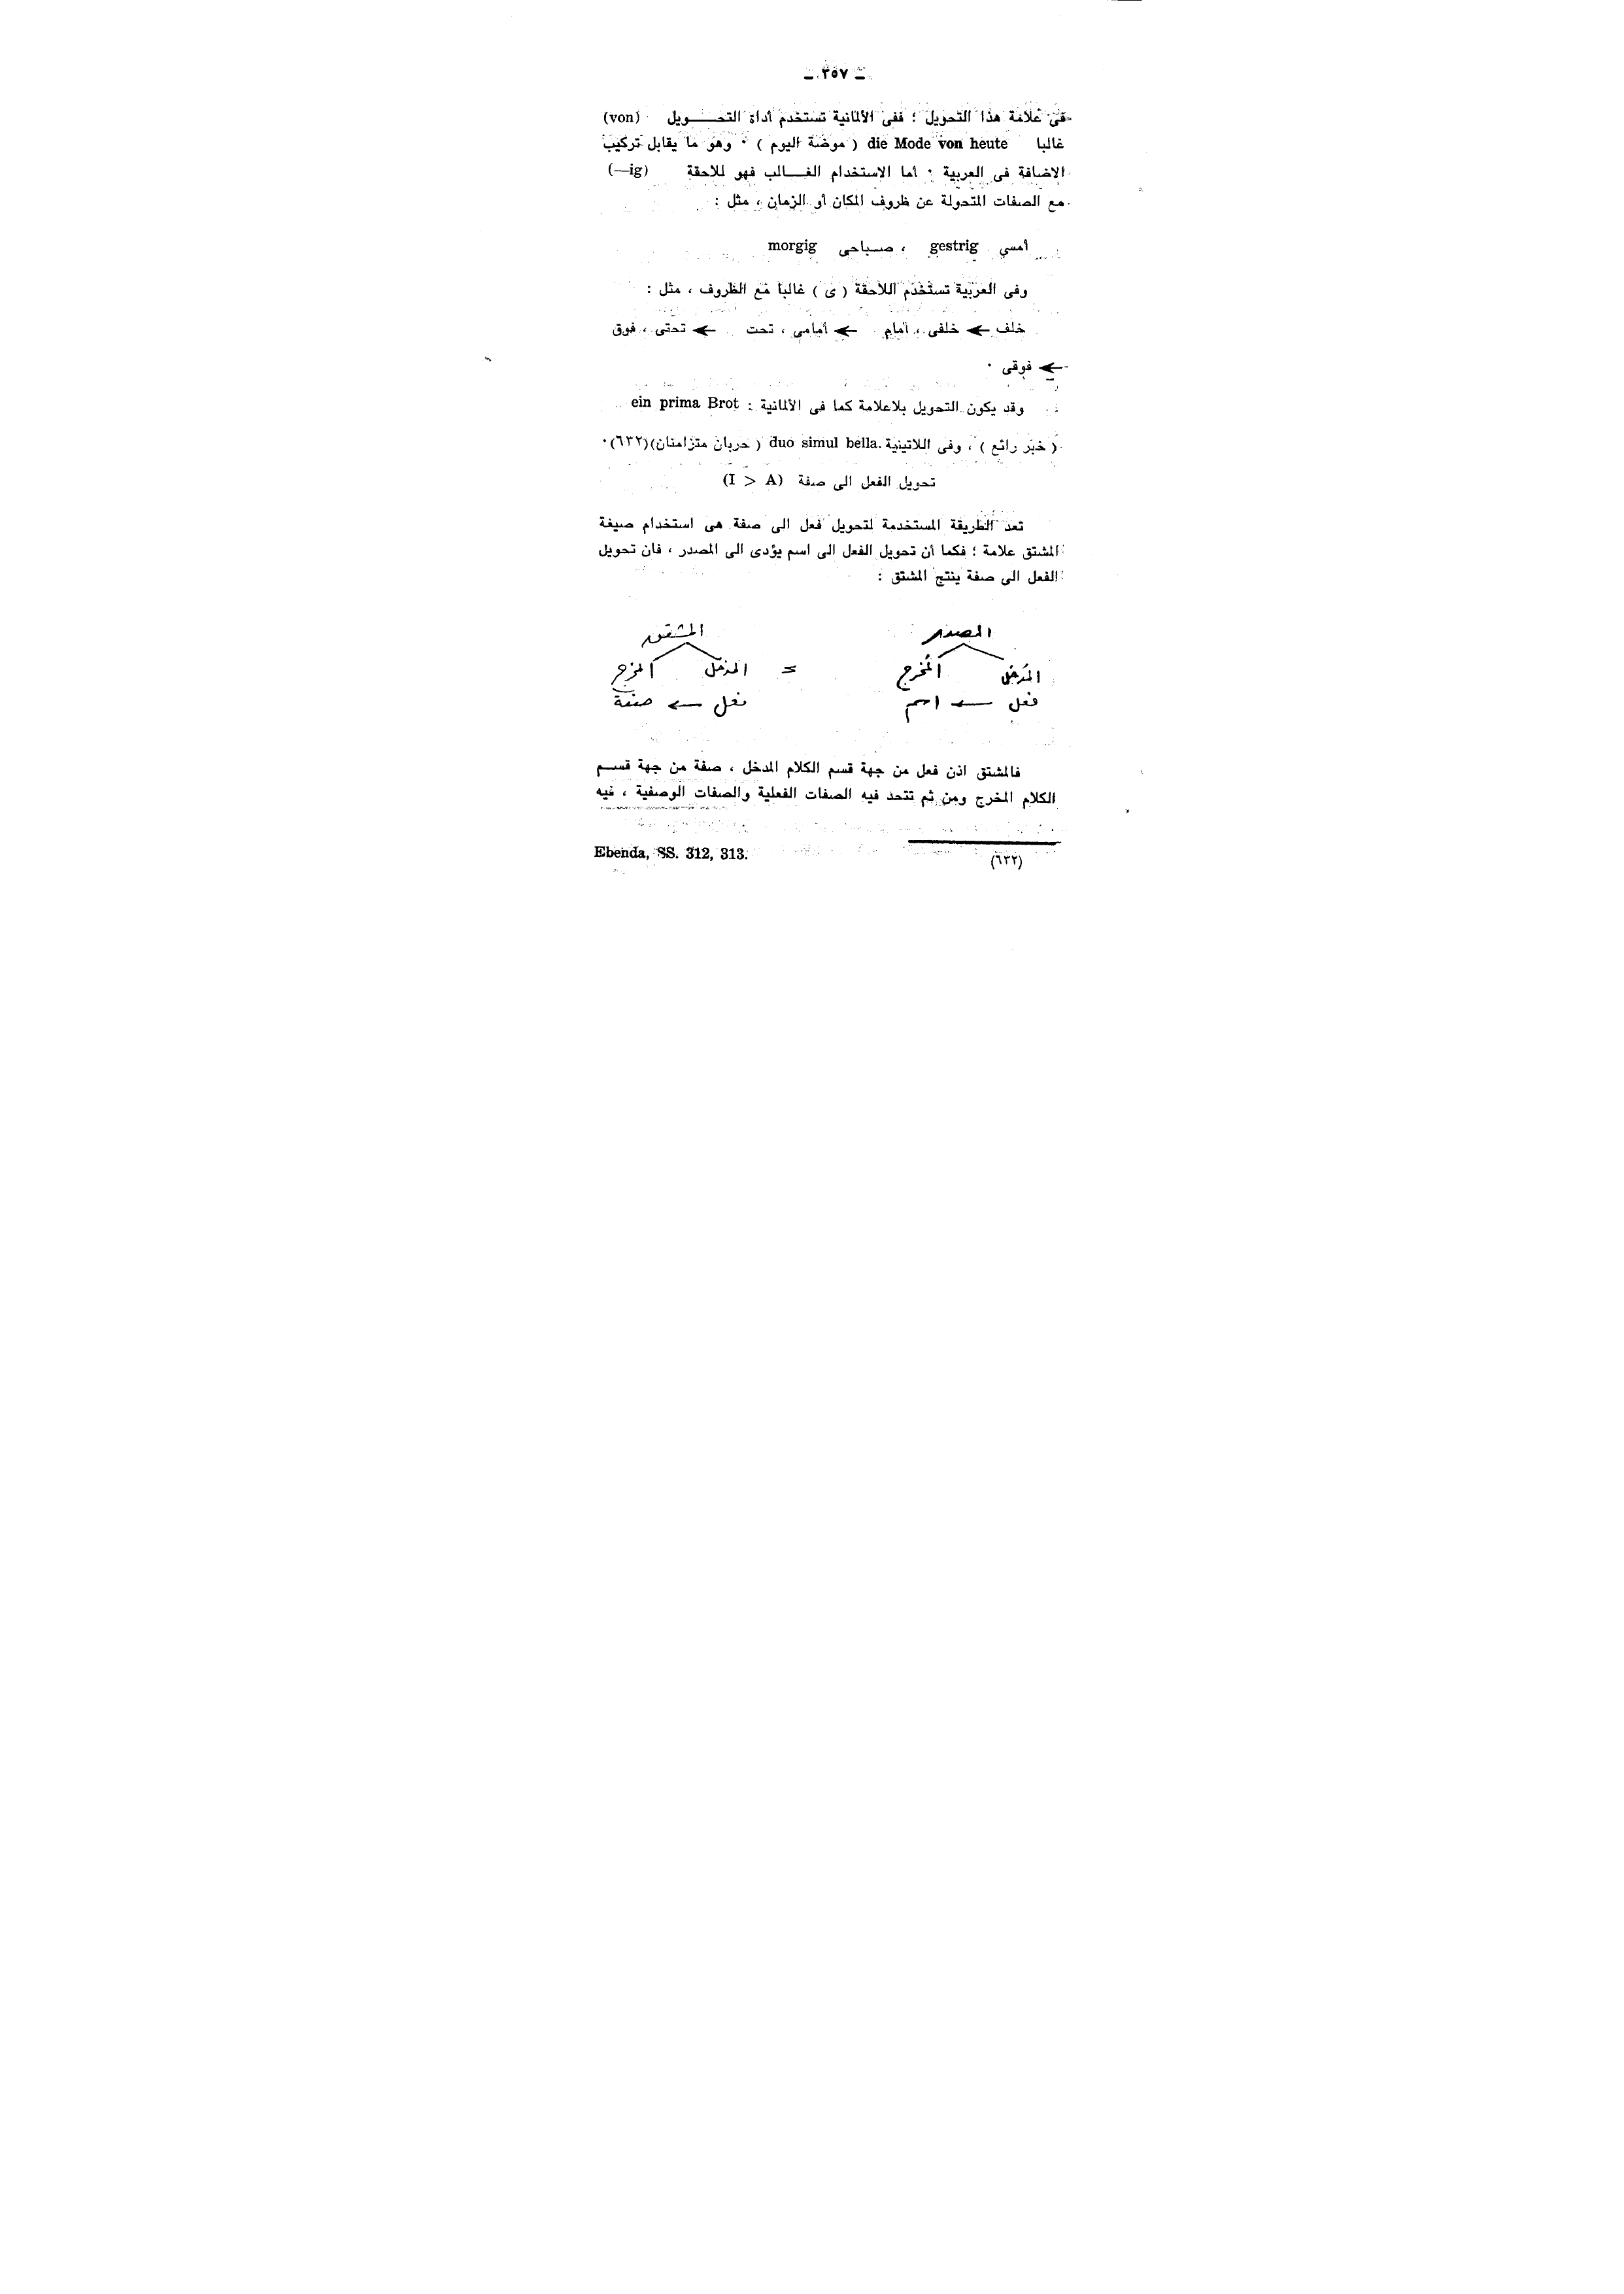 ـ ٣٥٧ ـ
فى علامة هذا التحويل ؛ ففى الألمانية تستخدم أداة التحـــويل (von)
غالبا die Mode von heute ( موضة اليوم ) ٠ وهو ما يقابل تركيب
الاضافة فى العربية ٠ أما الاستخدام الغـــالب فهو للاحقة (—ig)
مع الصفات المتحولة عن ظروف المكان أو الزمان ، مثل :
أمسي gestrig ، صباحى morgig
وفى العربية تستخدم اللاحقة ( ى ) غالبا مع الظروف ، مثل :
خلف ← خلفى ، أمام ← أمامى ، تحت ← تحتى ، فوق
← فوقى ٠
وقد يكون التحويل بلاعلامة كما فى الألمانية : ein prima Brot
( خبز رائع ) ، وفى اللاتينية duo simul bella. ( حربان متزامنان)(٦٣٢)٠
تحويل الفعل الى صفة (I > A)
تعد الطريقة المستخدمة لتحويل فعل الى صفة هى استخدام صيغة
المشتق علامة ؛ فكما أن تحويل الفعل الى اسم يؤدى الى المصدر ، فان تحويل
الفعل الى صفة ينتج المشتق :
المصدر المشتق
المُدخل المُخرج = المدخل المخرج
فعل ← اسم فعل ← صفة
فالمشتق اذن فعل من جهة قسم الكلام المدخل ، صفة من جهة قســم
الكلام المخرج ومن ثم تتحد فيه الصفات الفعلية والصفات الوصفية ، فيه
(٦٣٢) Ebenda, SS. 312, 313.